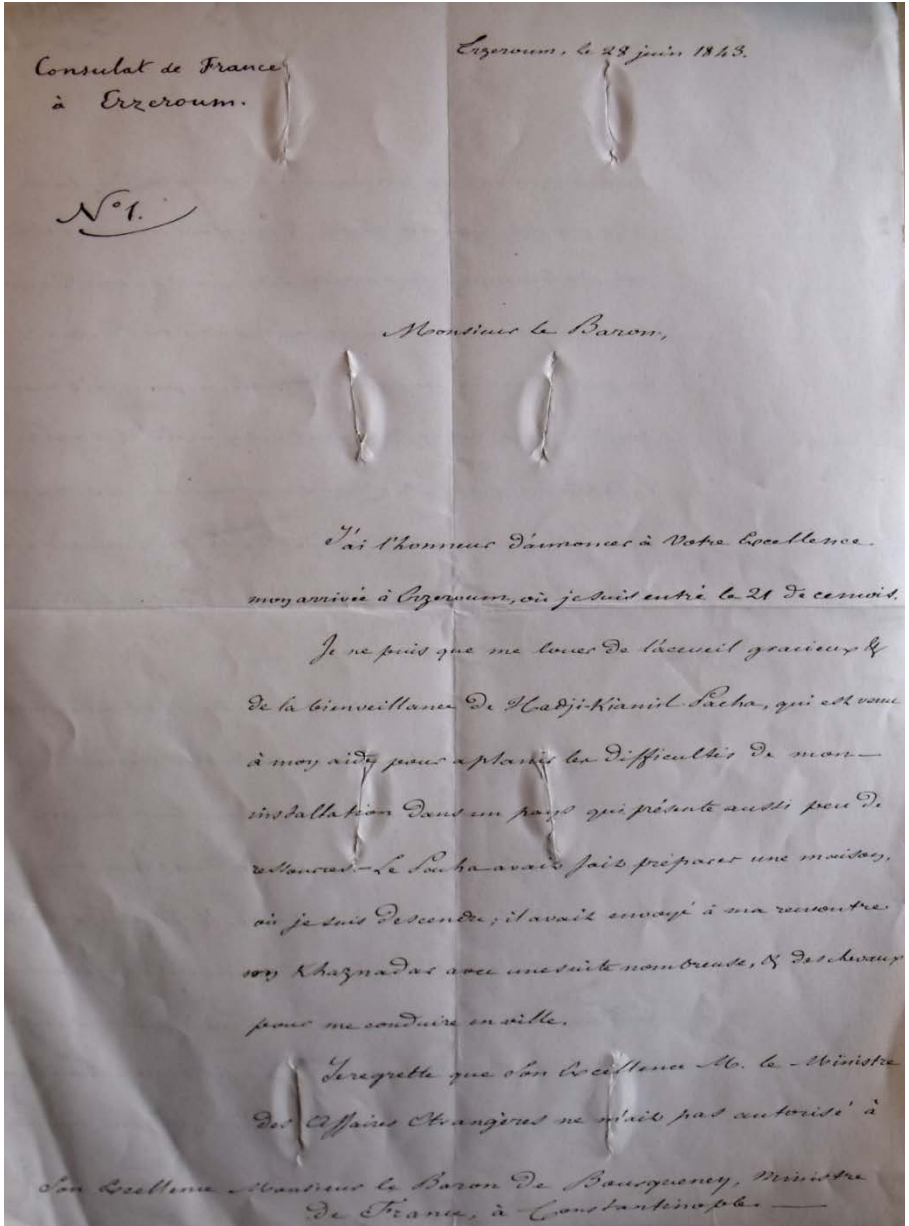 Consulat de France
à Erzeroum.
Erzeroum, le 28 juin 1843.
N° 1.
Monsieur le Baron,
J'ai l'honneur d'annoncer à Votre Excellence
mon arrivée à Erzeroum, où je suis entré le 21 de ce mois.
Je ne puis que me louer de l'accueil gracieux &
de la bienveillance de Hadji-Kiamil Pacha, qui est venu
à mon aide pour aplanir les difficultés de mon
installation dans un pays qui présente aussi peu de
ressources. - Le Pacha avait fait préparer une maison,
où je suis descendu; il avait envoyé à ma rencontre
son Khaznadar avec une suite nombreuse, & des chevaux
pour me conduire en ville.
Je regrette que Son Excellence M. le Ministre
des Affaires Etrangères ne m'ait pas autorisé à
Son Excellence Monsieur le Baron de Bourqueney, Ministre
de France, à Constantinople